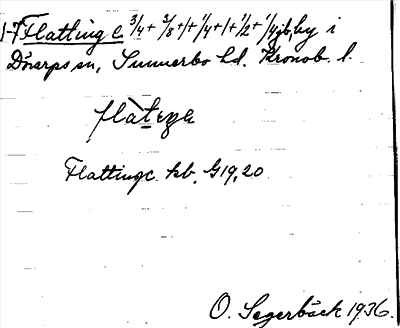 1-7 Flattinge 3/4 + 3/8 + 1 + 1/4 + 1 + 1/2 + 1/4 jb, by i
Dörarps sn, Sunnerbo hd. Kronob. l.
Flattinge kb. G19,20
O. Segerbäck 1936.